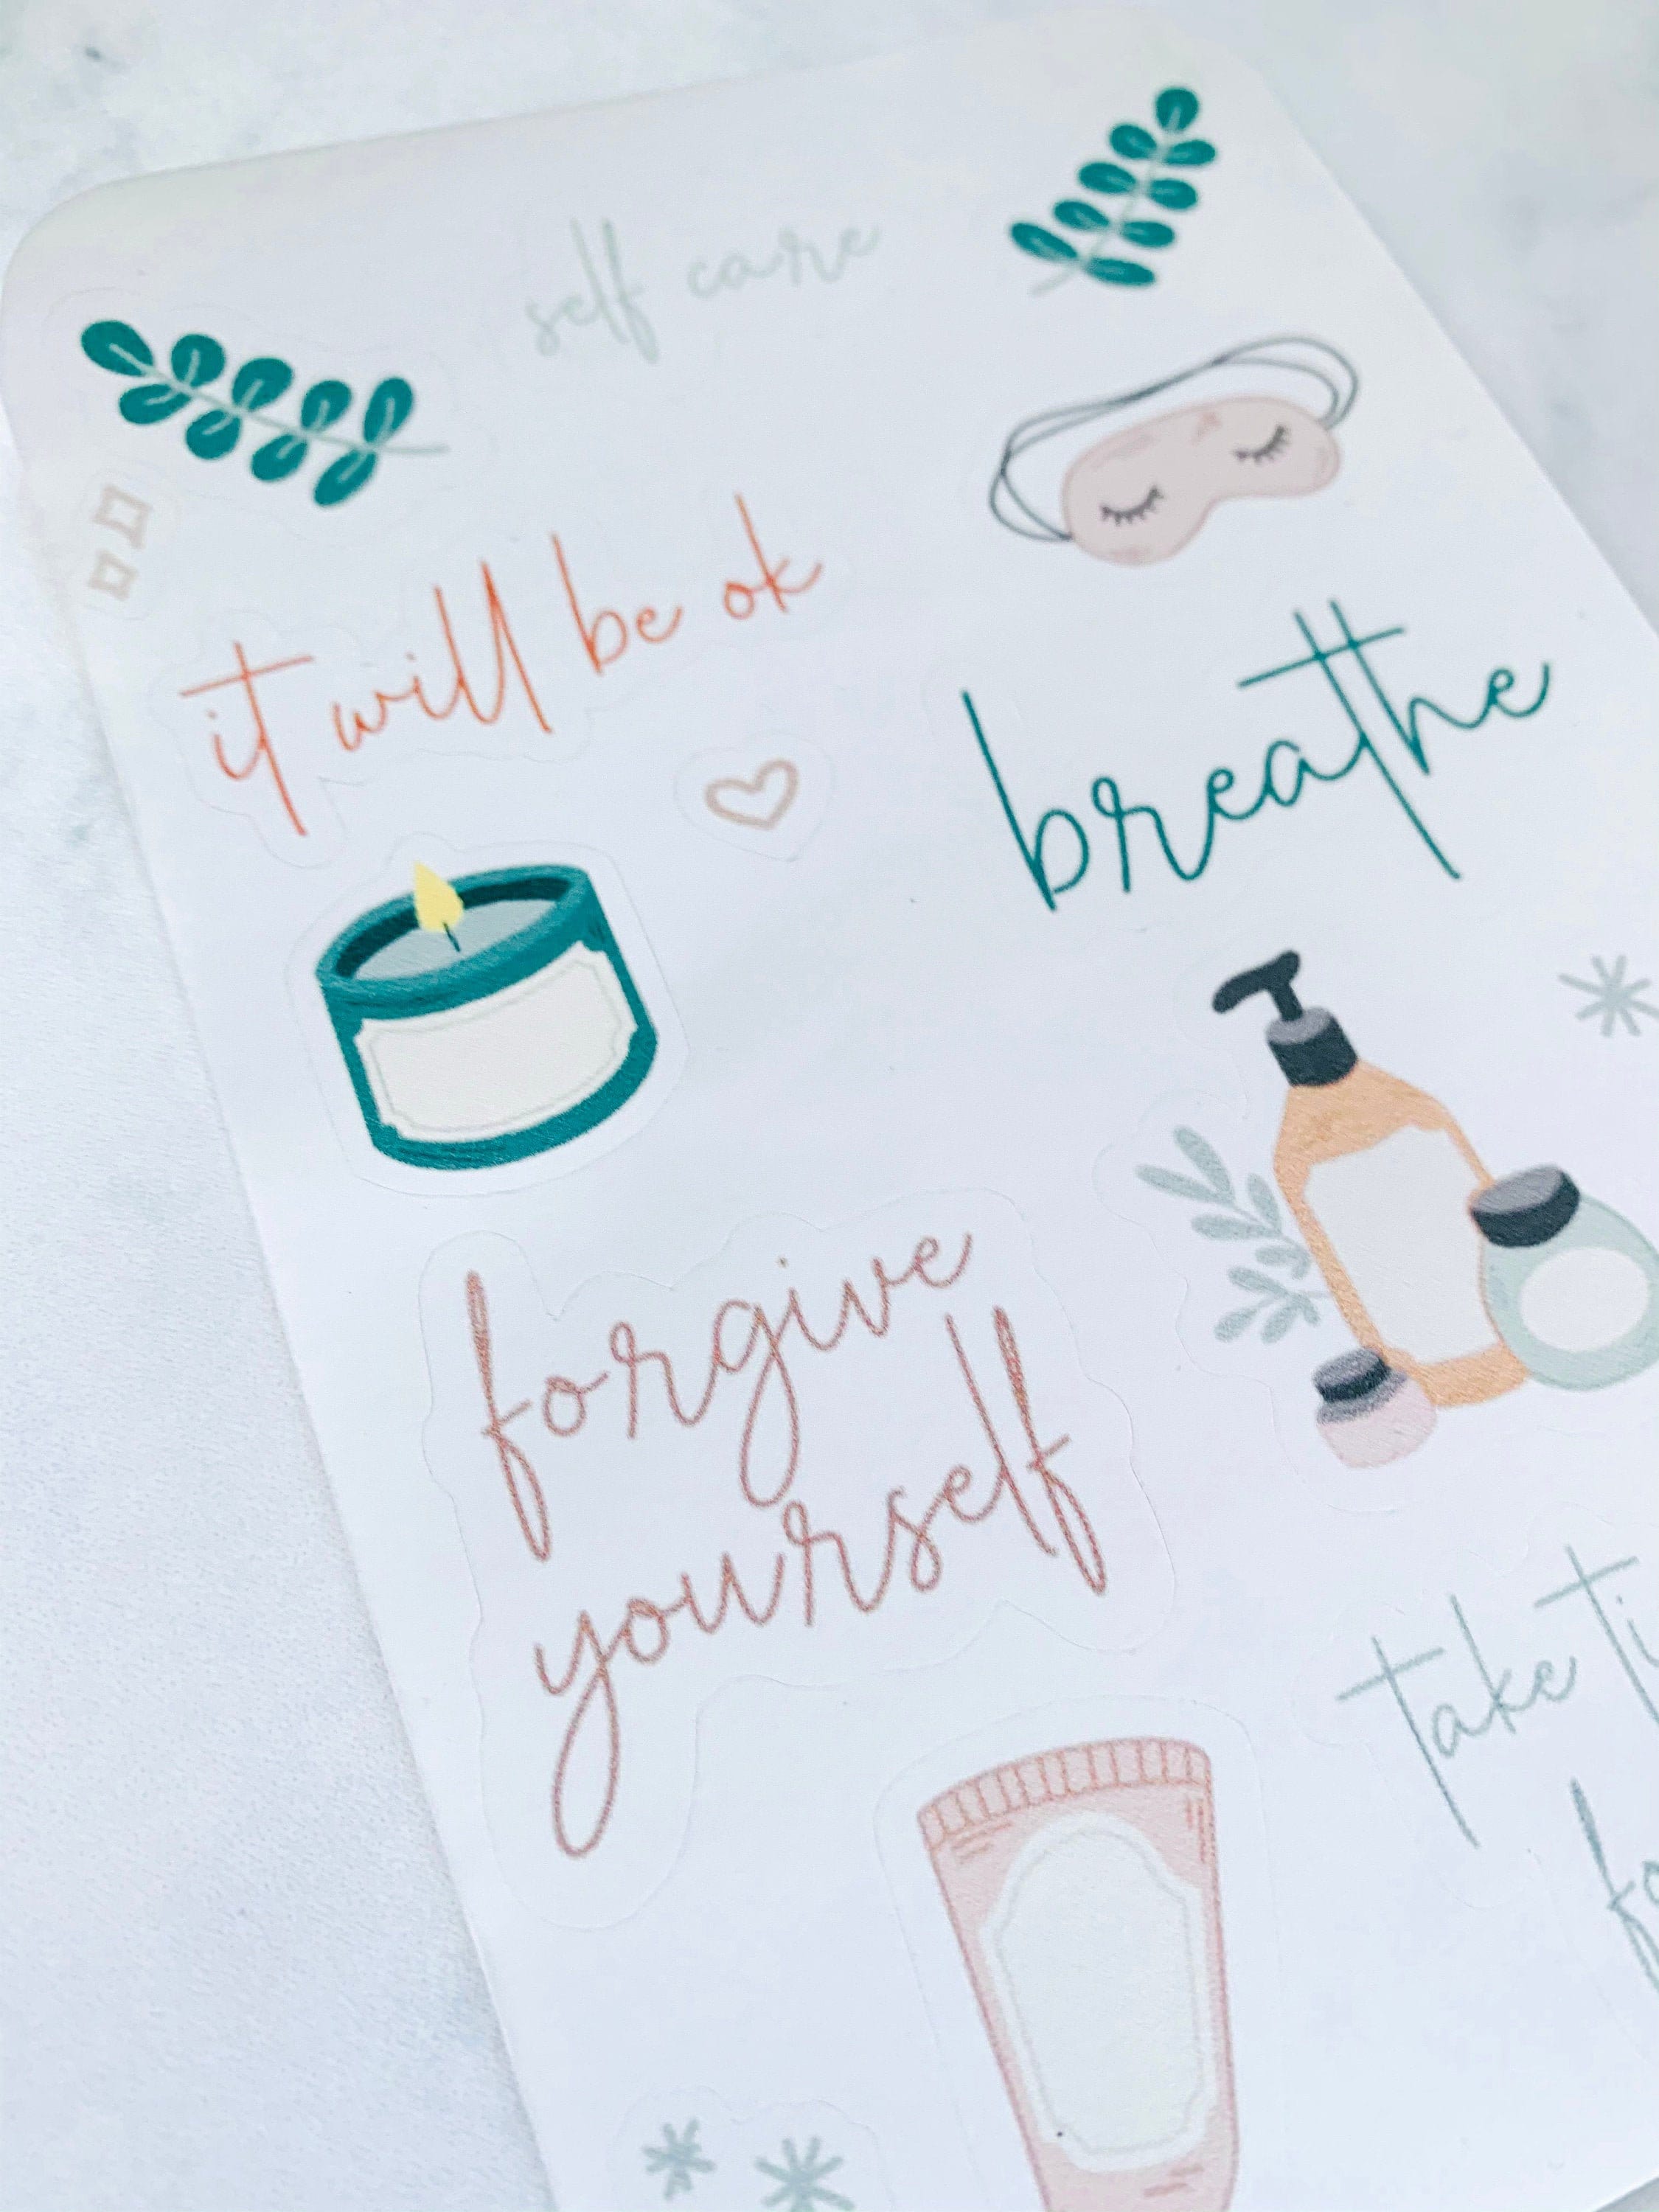 self care
it will be ok
breathe
forgive
yourself
take